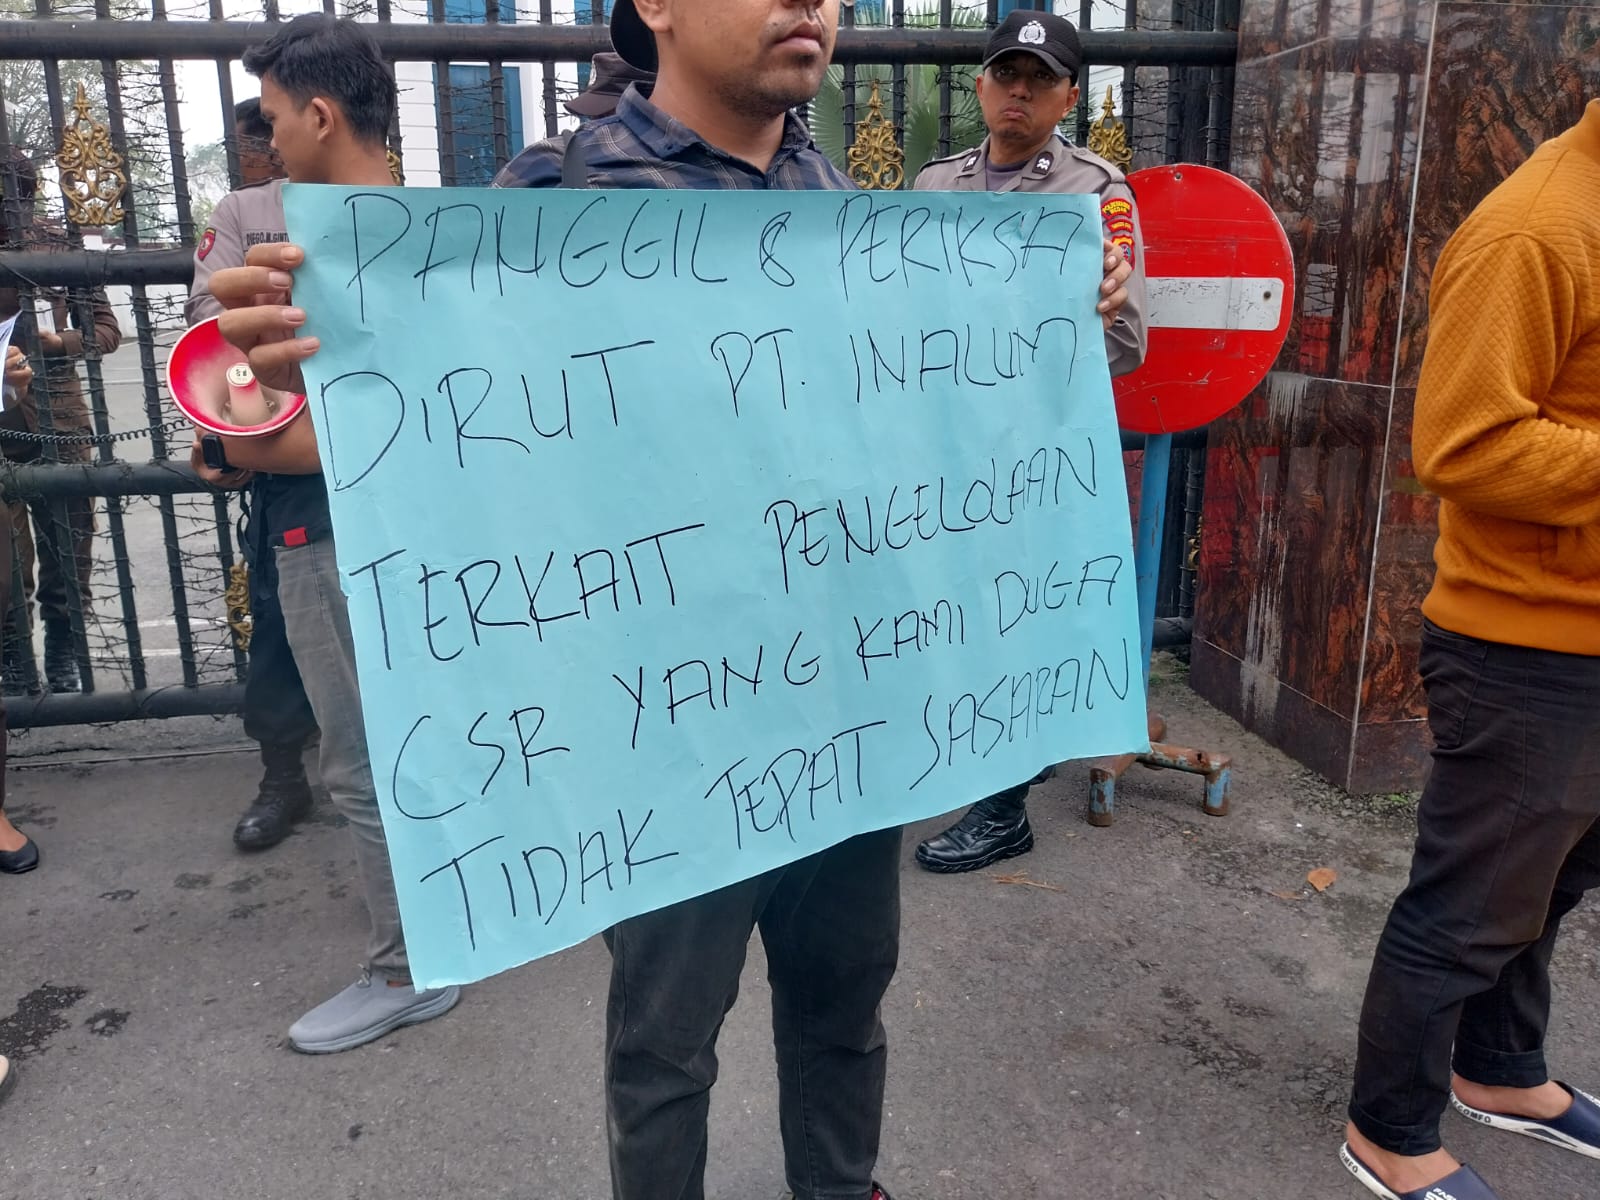 PANGGIL & PERIKSA
DIRUT PT. INALUM
TERKAIT PENGELOLAAN
CSR YANG KAMI DUGA
TIDAK TEPAT SASARAN